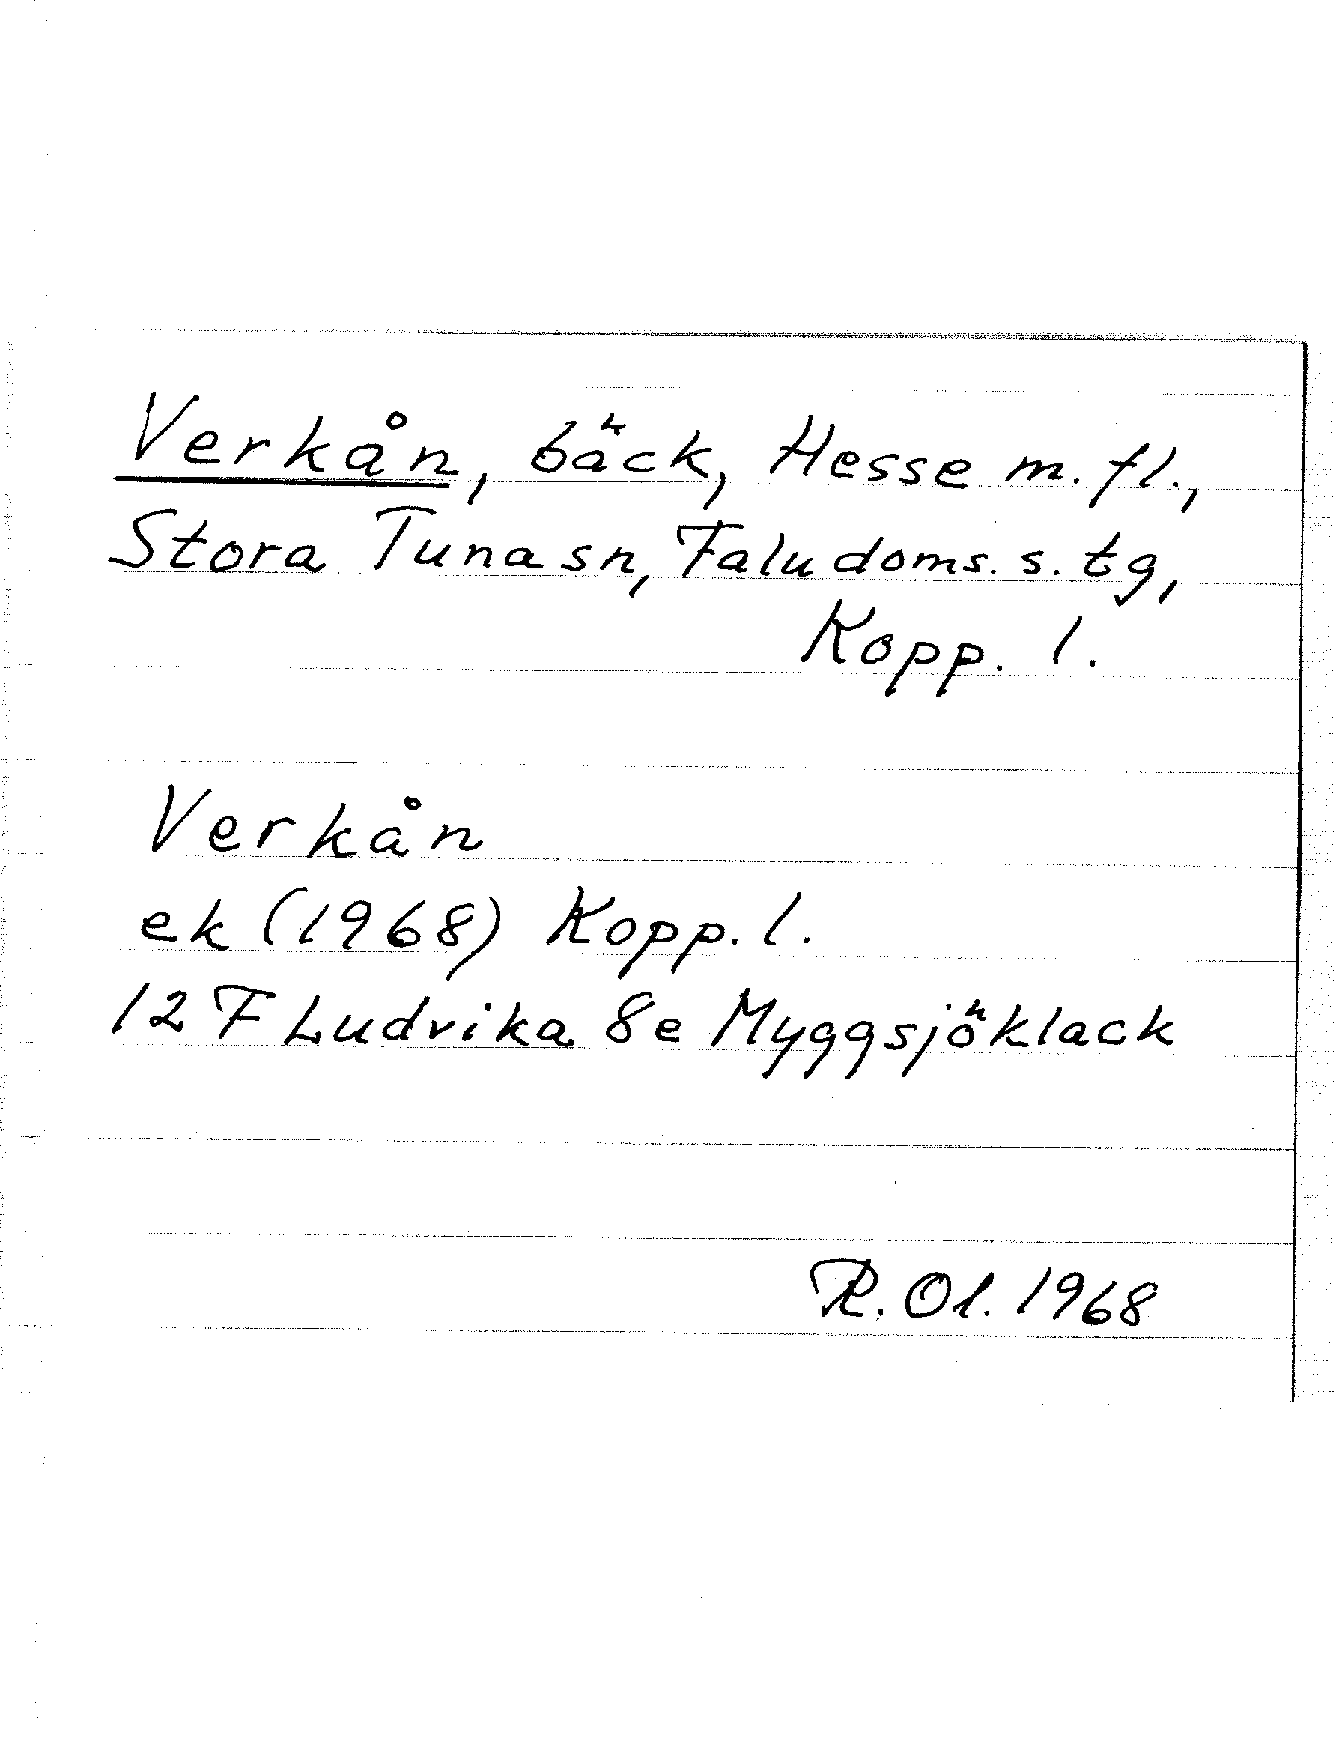 Verkån, bäck, Hesse m. fl.,
Stora Tuna sn, Falu doms. s. tg,
Kopp. l.
Verkån
ek (1968) Kopp. l.
12 F Ludvika 8e Myggsjöklack
R. Ol. 1968